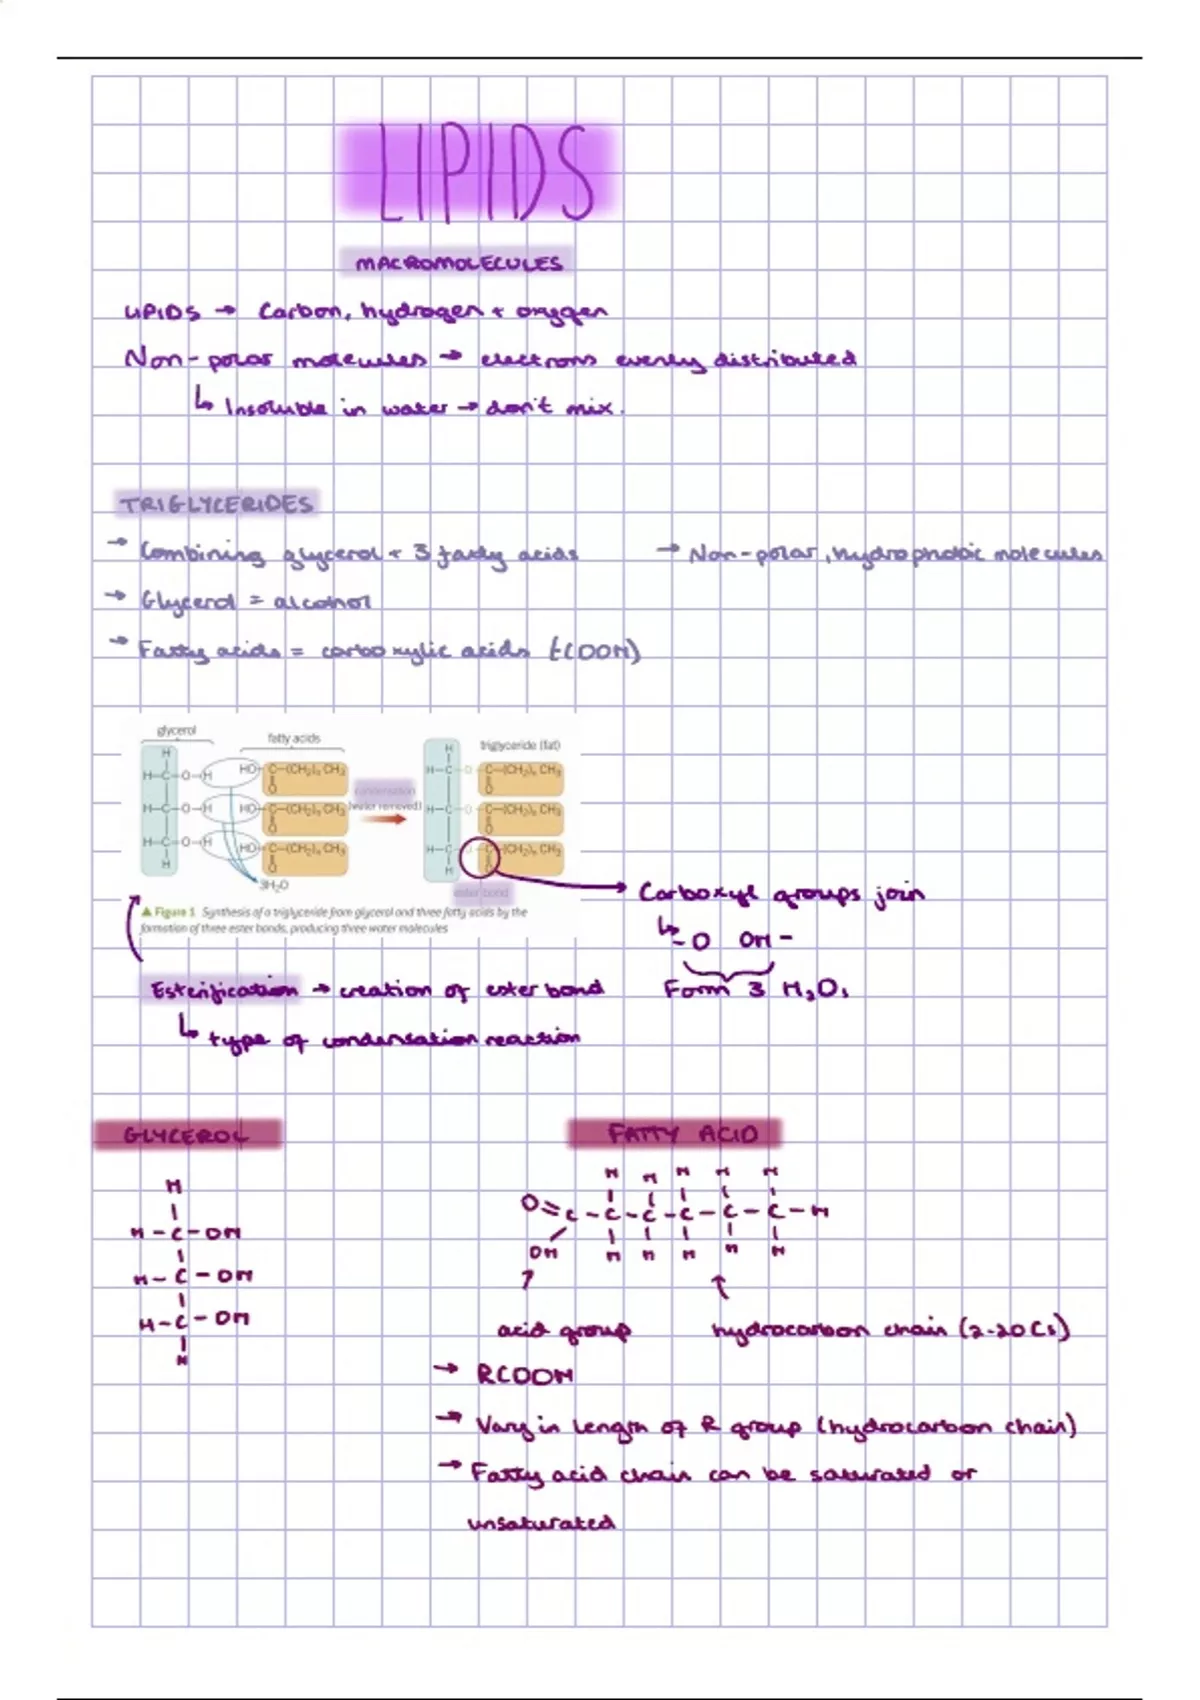 LIPIDS
MACROMOLECULES
LIPIDS → Carbon, hydrogen + oxygen
Non-polar molecules → electrons evenly distributed
↳ Insoluble in water → don't mix.
TRIGLYCERIDES
→ Combining glycerol + 3 fatty acids
→ Non-polar, hydrophobic molecules
→ Glycerol = alcohol
→ Fatty acids = carboxylic acids (-COOH)
glycerol
fatty acids
triglyceride (fat)
H
H
H-C-O-H HO-C-(CH₂)ₙ CH₃
H-C-O-C-(CH₂)ₙ CH₃
O
O
condensation
H-C-O-H HO-C-(CH₂)ₙ CH₃
(water removed)
H-C-O-C-(CH₂)ₙ CH₃
O
O
H-C-O-H HO-C-(CH₂)ₙ CH₃
H-C-O-C-(CH₂)ₙ CH₃
H
O
H
O
3H₂O
ester bond
▲ Figure 1 Synthesis of a triglyceride from glycerol and three fatty acids by the
formation of three ester bonds, producing three water molecules
→ Carboxyl groups join
↳ -O OH-
Form 3 H₂O,
Esterification → creation of ester bond
↳ type of condensation reaction
GLYCEROL
FATTY ACID
H
H-C-OH
H-C-OH
H-C-OH
H
H H H H H
O=C-C-C-C-C-C-H
OH H H H H H
acid group
hydrocarbon chain (2-20 Cs)
→ RCOOH
→ Vary in length of R group (hydrocarbon chain)
→ Fatty acid chain can be saturated or
unsaturated